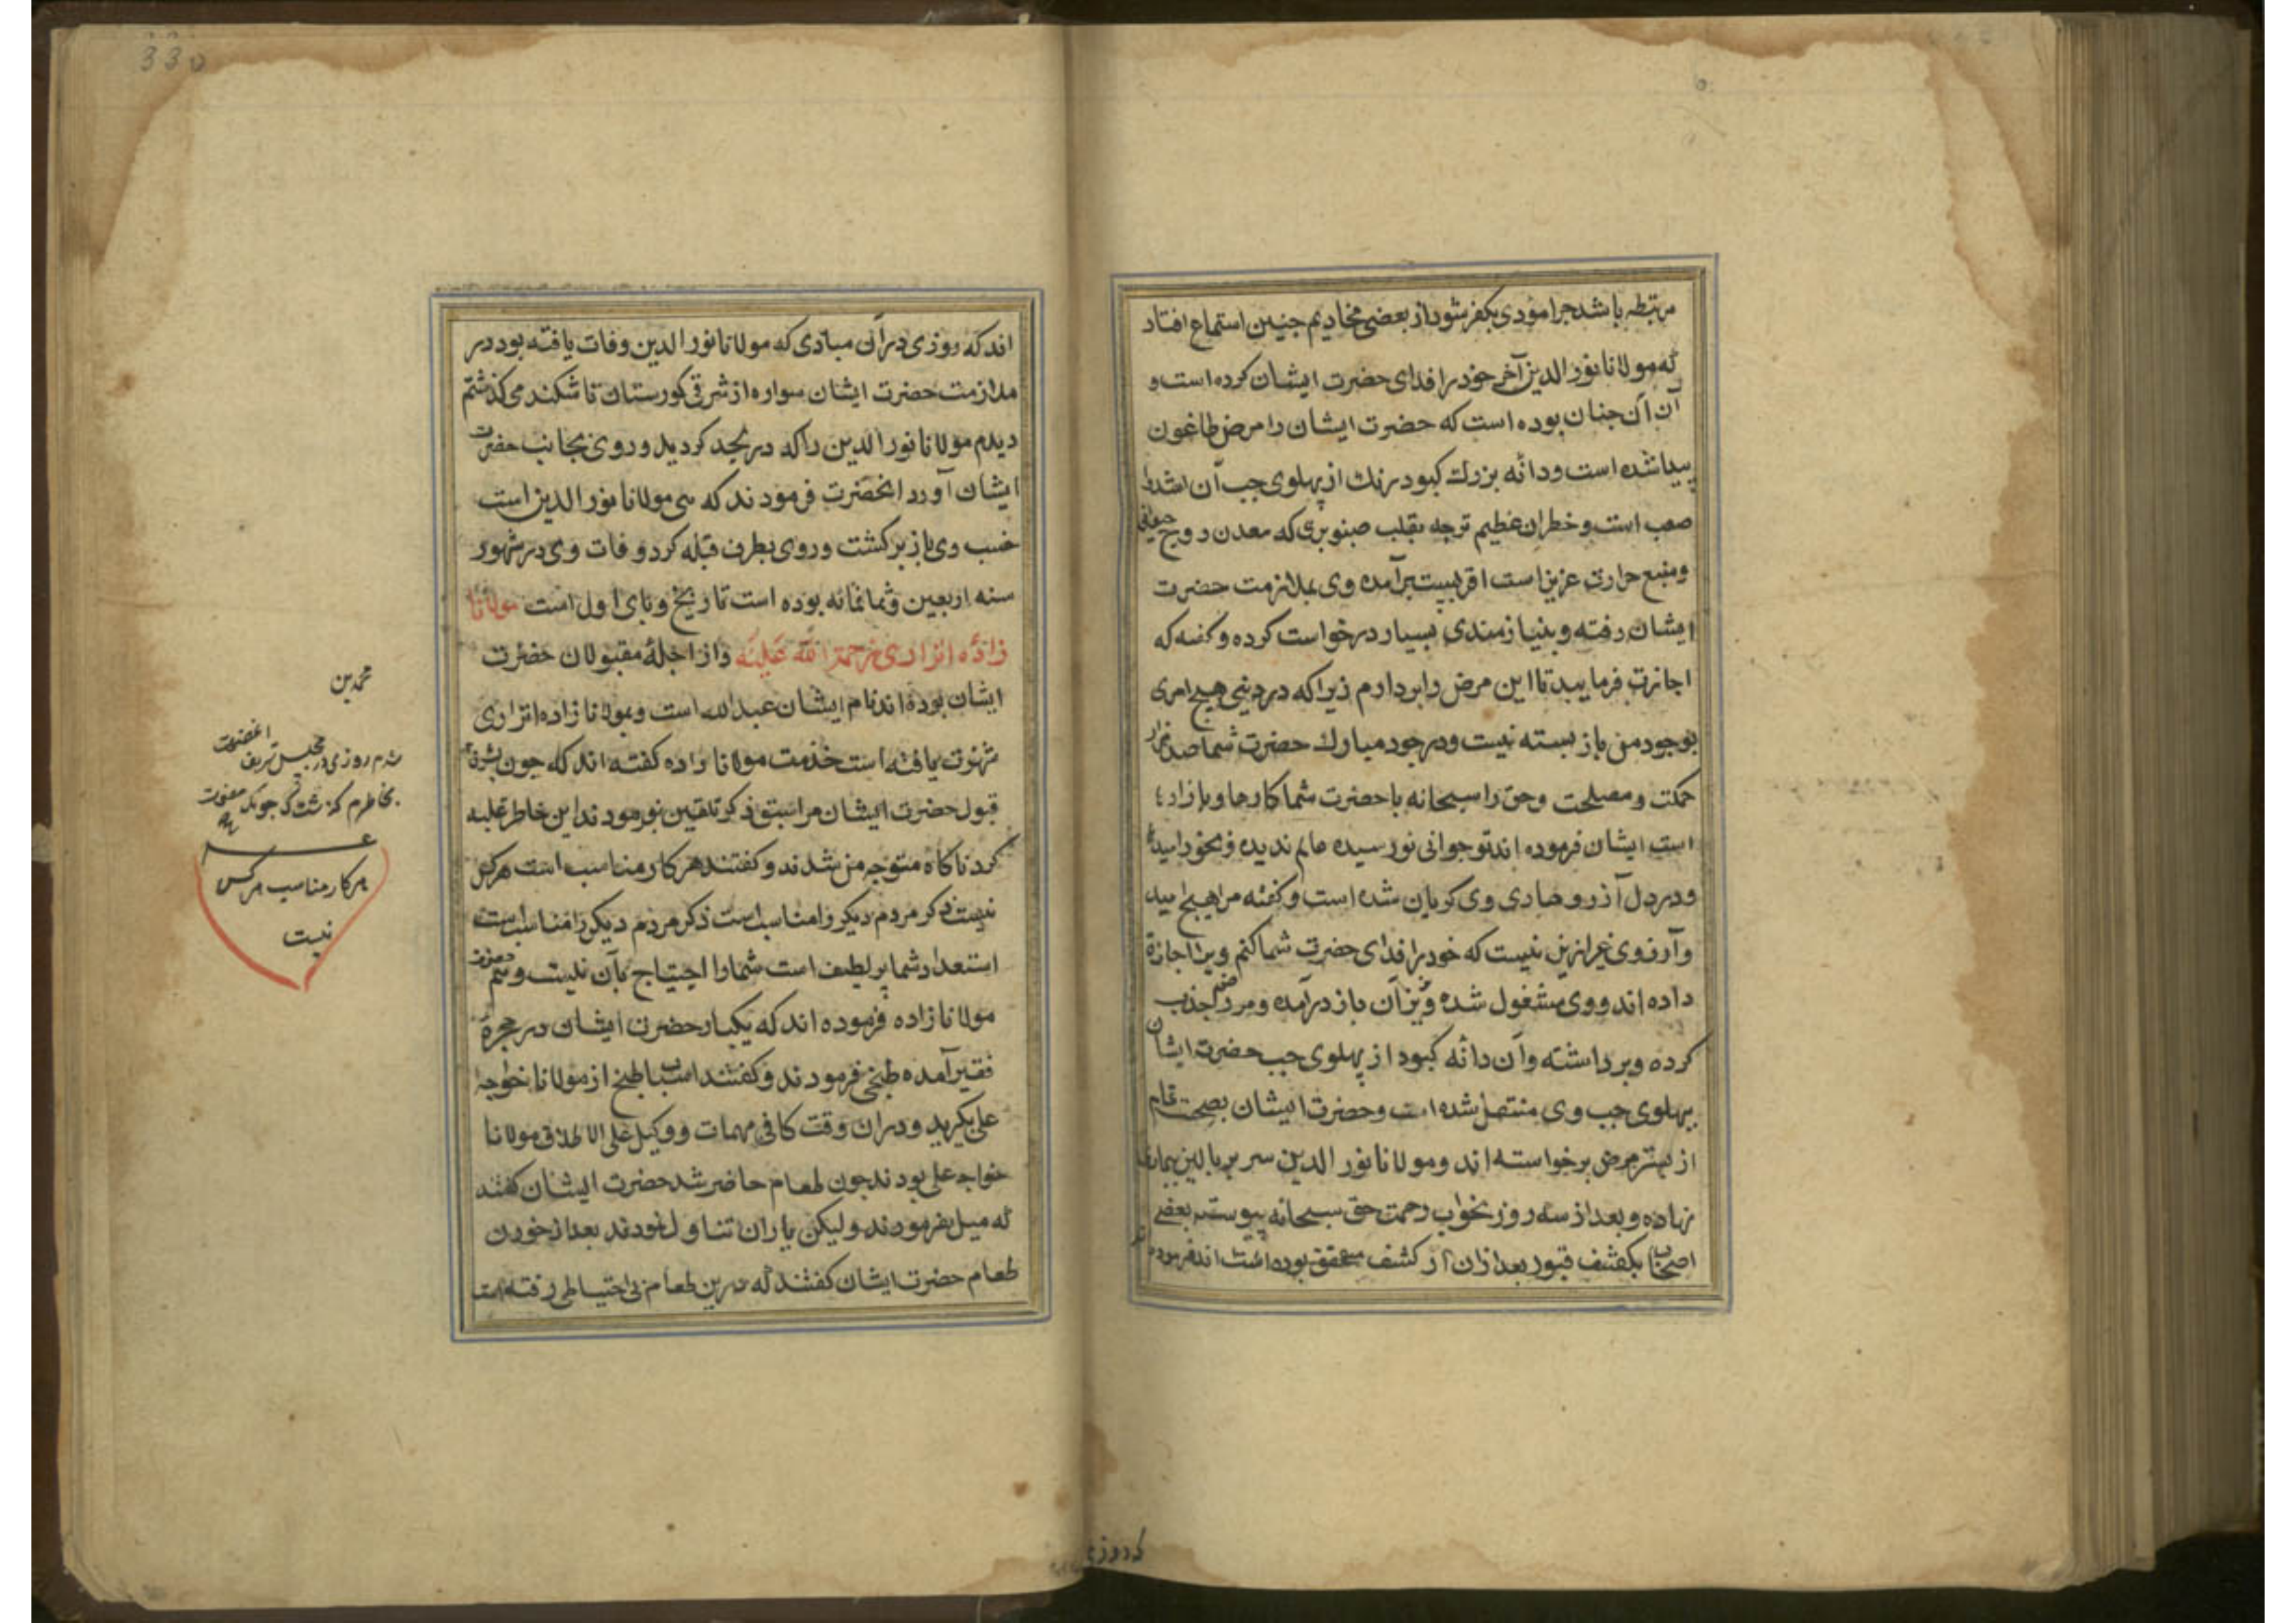 مرتبطه باشد جرا مؤدی بکفر شود از بعضی مخادیم جنین استماع افتاد
که مولانا نور الدین آخر خود را فدای حضرت ایشان کرده است و
آن آن جنان بوده است که حضرت ایشان را مرض طاعون
پیدا شده است و دانه بزرك کبود رنك از پهلوی جب آن
صعب است و خطران عظیم ترجه بقلب صنوبری که معدن روح
ومنبع حرارت عزیز است اقربست برآمده وی بملازمت حضرت
ایشان رفته و بنیازمندی بسیار درخواست کرده و کفته که
اجازت فرمایید تا این مرض را بردارم زیرا که در دینی هیج امری
بوجود من باز بسته نیست و در جود مبارك حضرت شما صد هزار
حکمت و مصلحت و حق را سبحانه با حضرت شما کارها و بازار
است ایشان فرموده اند تو جوانی نو رسیده عالم ندیده و بخود
و در دل آذرو دادی وی کریان شده است و کفته مرا هیج امید
و آرزوی غیر ازین نیست که خود را فدای حضرت شما کنم ویرا اجازة
داده اند و وی مشغول شده و نیز آن باز درآمده و مرض جذب
کرده و برداشته و آن دانه کبود از پهلوی جب حضرت ایشان
بپهلوی جب وی منتقل شده است و حضرت ایشان بصحت تمام
از بستر مرض برخواسته اند و مولانا نور الدین سر بر بالین بیماری
نهاده و بعد از سه روز بخواب رحمت حق سبحانه پیوسته بعضی
اصحاب بکشف قبور بعد از آن از کشف محقق بوده است اند فرموده
که روزی
330
اند که روزی در آن مبادی که مولانا نور الدین وفات یافته بود در
ملازمت حضرت ایشان سواره از شرقی کورستان تاشکند می کذشتم
دیدم مولانا نور الدین را که در لحد کردید و روی بجانب حضرت
ایشان آورد انحضرت فرمودند که می مولانا نور الدین است
خسب وی باز برکشت و روی بطرف قبله کرد و فات وی در شهور
سنه اربعین و ثمانمائه بوده است تاریخ وبای اول است مولانا
زاده اتراری رحمة الله علیه و از اجلهٔ مقبولان حضرت
ایشان بوده اند نام ایشان عبد الله است و بمولانا زاده اتراری
شهرت یافته است خدمت مولانا زاده کفته اند که جون بشرف
قبول حضرت ایشان مرا سبق ذکر تلقین نفرمودند این خاطر غلبه
کرد ناکاه متوجه من شدند و کفتند هر کار مناسب است هر کس
نیست ذکر مردم دیکر را مناسب است ذکر مردم دیکر را مناسب است
استعداد شما پر لطیف است شما را احتیاج بآن نیست و هم
مولانا زاده فرموده اند که یکبار حضرت ایشان در حجرۀ
فقیر آمده طبخی فرمودند و کفتند اسباب طبخ از مولانا خواجه
علی بکیرید و در ان وقت کافی مهمات و وکیل علی الاطلاق مولانا
خواجه علی بودند جون طعام حاضر شد حضرت ایشان کفتند
که میل نفرمودند ولیکن یاران تناول نمودند بعد از خوردن
طعام حضرت ایشان کفتند که درین طعام بی احتیاطی رفته است
روزی در مجلس شریف
بخاطرم کذشت که جونکه
هر کار مناسب هر کس
نیست